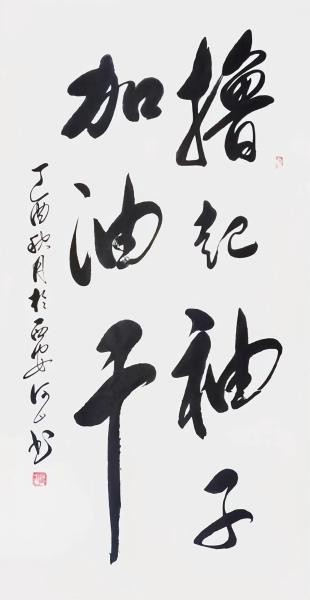 撸起袖子
加油干
丁酉秋月於西安何山书